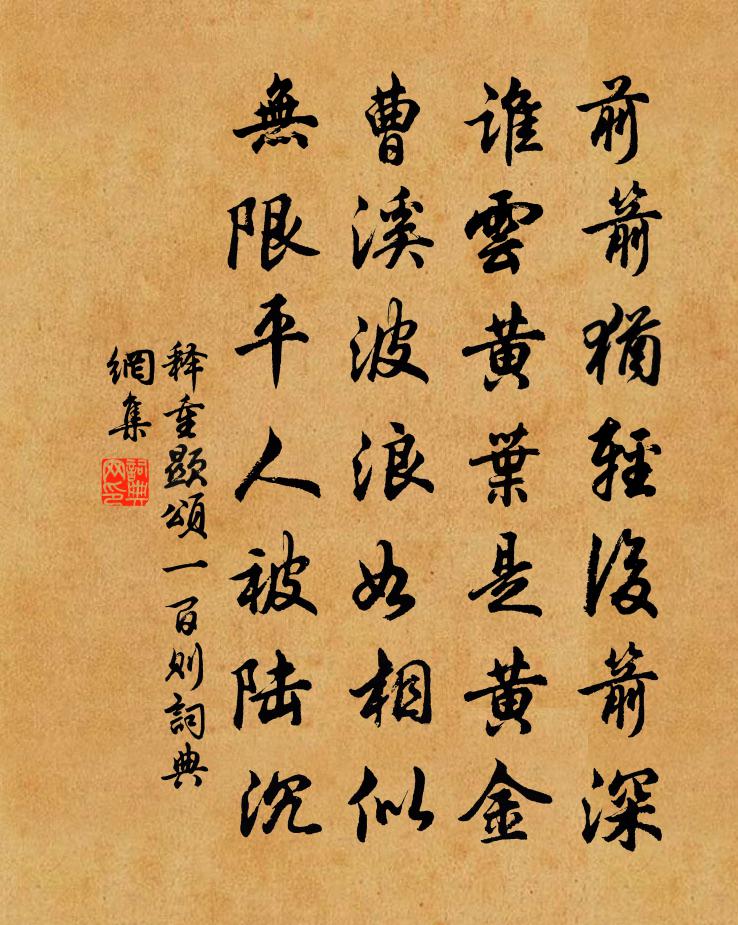 前箭猶輕後箭深
誰雲黃葉是黃金
曹溪波浪如相似
無限平人被陆沉
释重顯頌一百则詞典
網集
詞典
网印